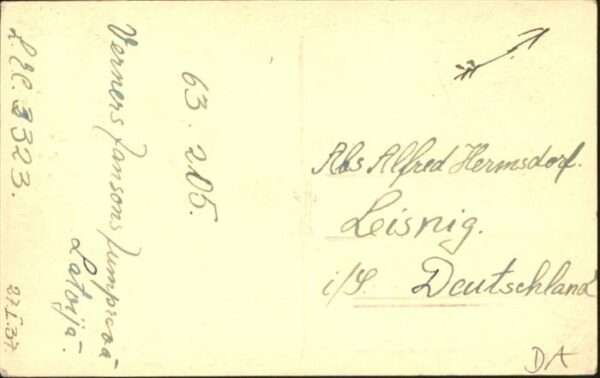 L.E.C. 3323.
27.I.37
Verners Jansons Jumpravā
Latvijā.
63.205.
Abs Alfred Hermsdorf.
Leisnig.
i/S. Deutschland
DA